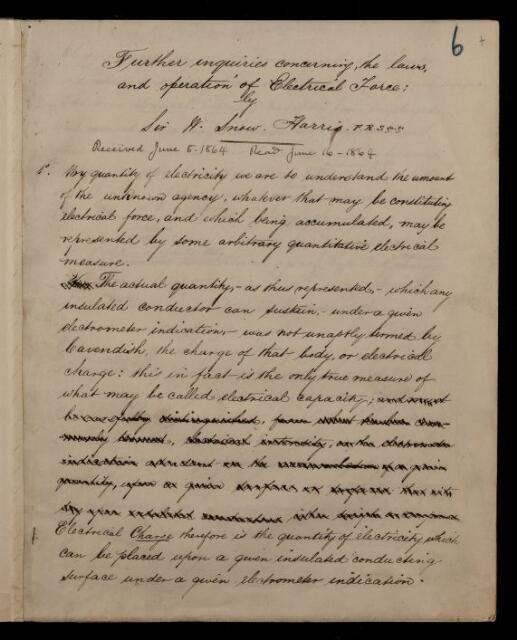 6
Further inquiries concerning, the laws,
and operation of Electrical Force:
by
Sir W. Snow. Harris. F.R.S &c
Received June 5. 1864 Read June 16 - 1864
1°. By quantity of electricity we are to understand the amount
of the unknown agency, whatever that may be constituting
electrical force, and which being accumulated, may be
represented by some arbitrary quantitative electrical
measure.
The actual quantity, - as thus represented, - which any
insulated conductor can sustain, - under a given
electrometer indication, - was not unaptly termed by
Cavendish, the charge of that body, or electrical
charge: this in fact is the only true measure of
what may be called electrical capacity; and must
be carefully distinguished, from what has been com-
monly termed, electrical intensity, or the electrometer
indication attendant on the accumulation of a given
quantity, upon a given surface
Electrical Charge therefore is the quantity of electricity which
can be placed upon a given insulated conducting
surface under a given electrometer indication.